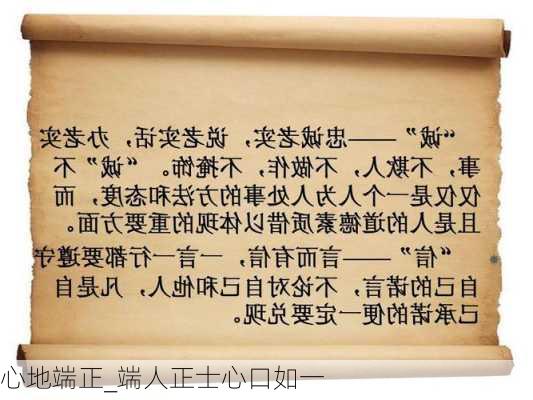 “诚”——忠诚老实，说老实话，办老实
事，不欺人，不做作，不掩饰。“诚”不
仅仅是一个人为人处事的方法和态度，而
且是人的道德素质借以体现的重要方面。
“信”——言而有信，一言一行都要遵守
自己的诺言，不论对自己和他人，凡是自
己承诺的便一定要兑现。
心地端正_端人正士心口如一